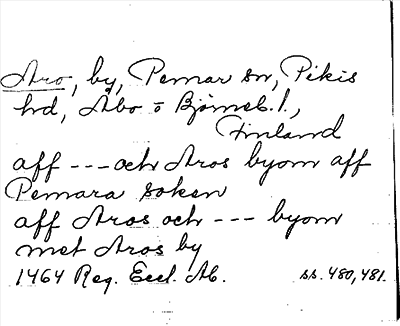 Aro, by, Pemar sn, Pikis
hd, Åbo o Björneb. l.,
Finland
aff --- och Aros byom aff
Pemara soken
aff Aros och --- byom
met Aros by
1464 Reg. Eccl. Ab. ss. 480, 481.